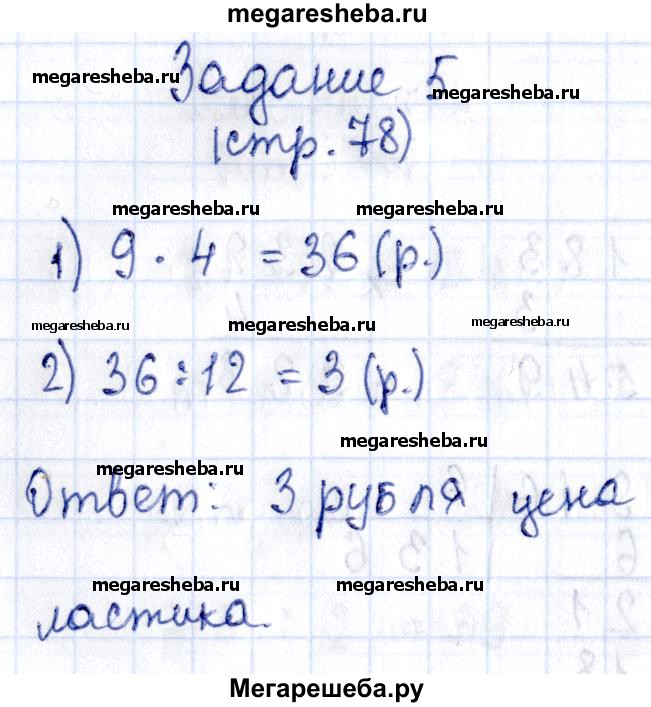 megaresheba.ru
Задание 5
megaresheba.ru megaresheba.ru
(стр. 78)
megaresheba.ru megaresheba.ru
1) 9 · 4 = 36 (р.)
megaresheba.ru megaresheba.ru megaresheba.ru
2) 36 : 12 = 3 (р.)
megaresheba.ru
megaresheba.ru
Ответ: 3 рубля цена
megaresheba.ru megaresheba.ru
ластика.
Мегарешеба.ру